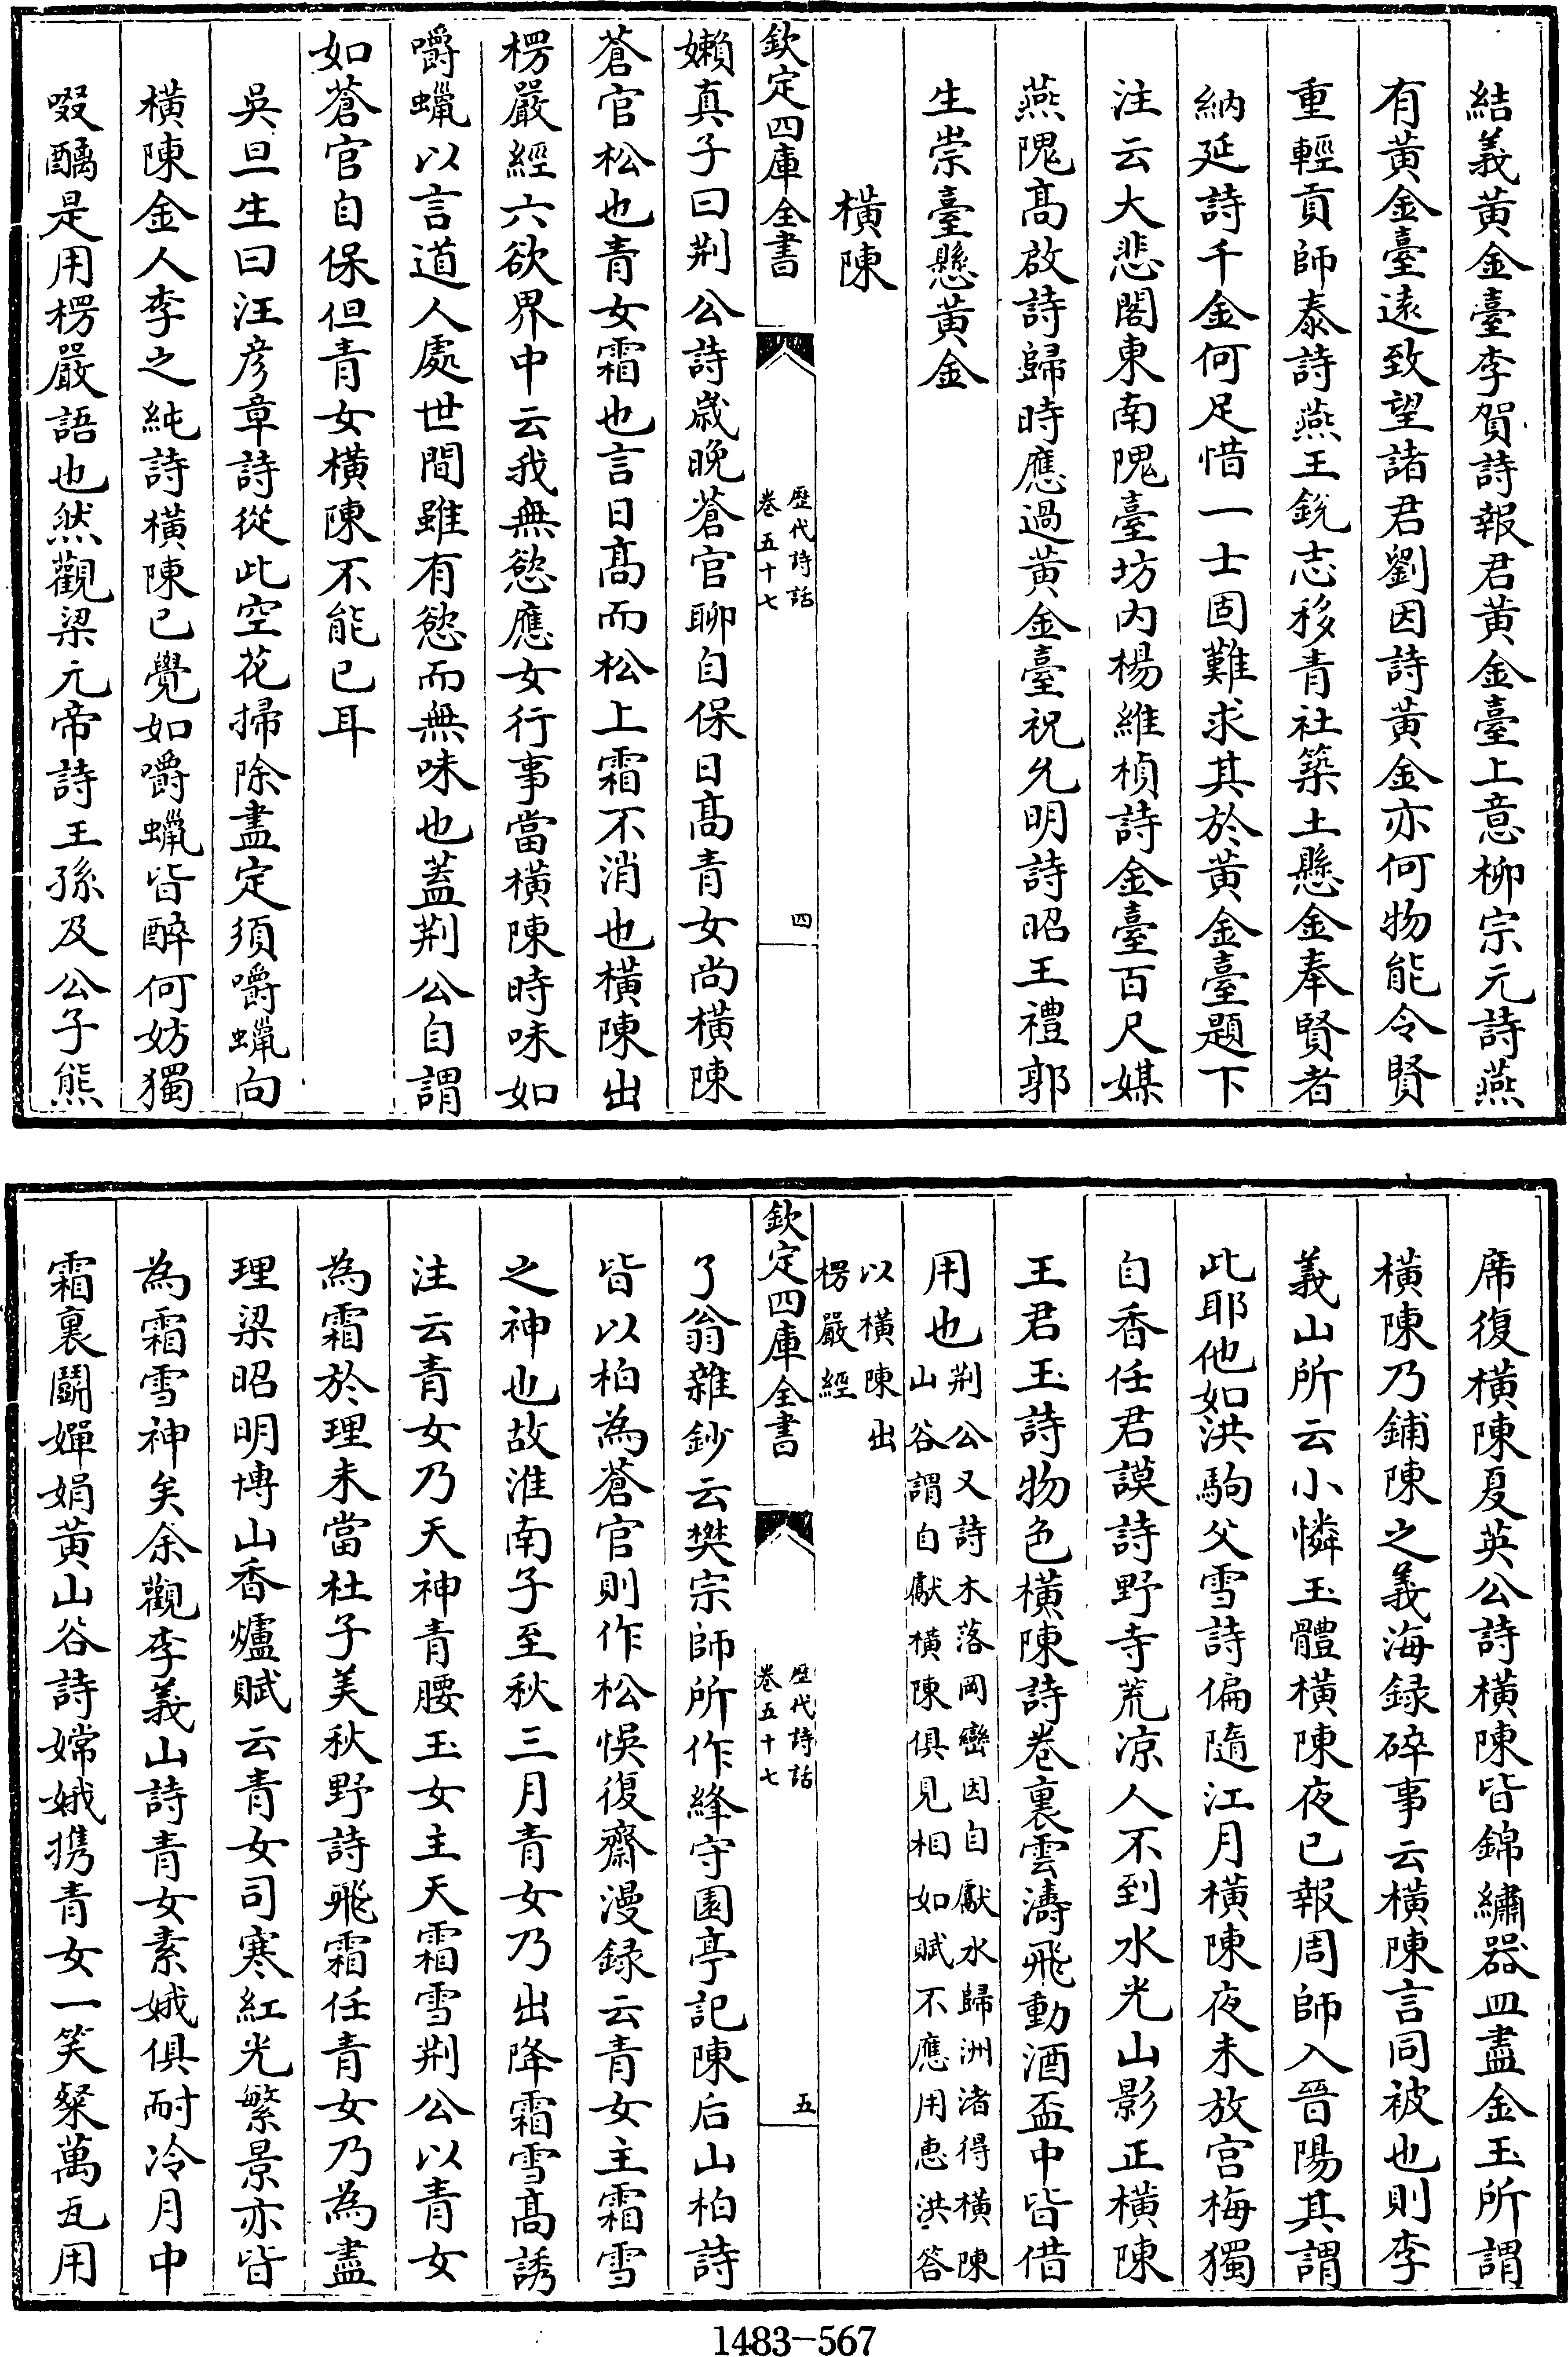 結義黃金臺李賀詩報君黃金臺上意柳宗元詩燕
有黃金臺遠致望諸君劉因詩黃金亦何物能令賢
重輕貢師泰詩燕王銳志移青社築土懸金奉賢者
納延詩千金何足惜一士固難求其於黃金臺題下
注云大悲閣東南隗臺坊內楊維楨詩金臺百尺媒
燕隗高啟詩歸時應過黃金臺祝允明詩昭王禮郭
生崇臺懸黃金
橫陳
欽定四庫全書
歷代詩話
卷五十七
四
嬾真子曰荆公詩歲晚蒼官聊自保日高青女尚橫陳
蒼官松也青女霜也言日高而松上霜不消也橫陳出
楞嚴經六欲界中云我無慾應女行事當橫陳時味如
嚼蠟以言道人處世間雖有慾而無味也蓋荆公自謂
如蒼官自保但青女橫陳不能已耳
吳旦生曰汪彥章詩從此空花掃除盡定須嚼蠟向
橫陳金人李之純詩橫陳已覺如嚼蠟皆醉何妨獨
啜醨是用楞嚴語也然觀梁元帝詩王孫及公子熊
席復橫陳夏英公詩橫陳皆錦繡器皿盡金玉所謂
橫陳乃鋪陳之義海録碎事云橫陳言同被也則李
義山所云小憐玉體橫陳夜已報周師入晉陽其謂
此耶他如洪駒父雪詩偏隨江月橫陳夜未放宮梅獨
自香任君謨詩野寺荒涼人不到水光山影正橫陳
王君玉詩物色橫陳詩卷裏雲濤飛動酒盃中皆借
用也荆公又詩木落岡巒因自獻水歸洲渚得橫陳
山谷謂自獻橫陳俱見相如賦不應用惠洪答
以橫陳出
楞嚴經
欽定四庫全書
歷代詩話
卷五十七
五
了翁雜鈔云樊宗師所作絳守園亭記陳后山柏詩
皆以柏為蒼官則作松悞復齋漫録云青女主霜雪
之神也故淮南子至秋三月青女乃出降霜雪高誘
注云青女乃天神青腰玉女主天霜雪荆公以青女
為霜於理未當杜子美秋野詩飛霜任青女乃為盡
理梁昭明博山香爐賦云青女司寒紅光繁景亦皆
為霜雪神矣余觀李義山詩青女素娥俱耐冷月中
霜裏鬭嬋娟黃山谷詩嫦娥擕青女一笑粲萬瓦用
1483-567